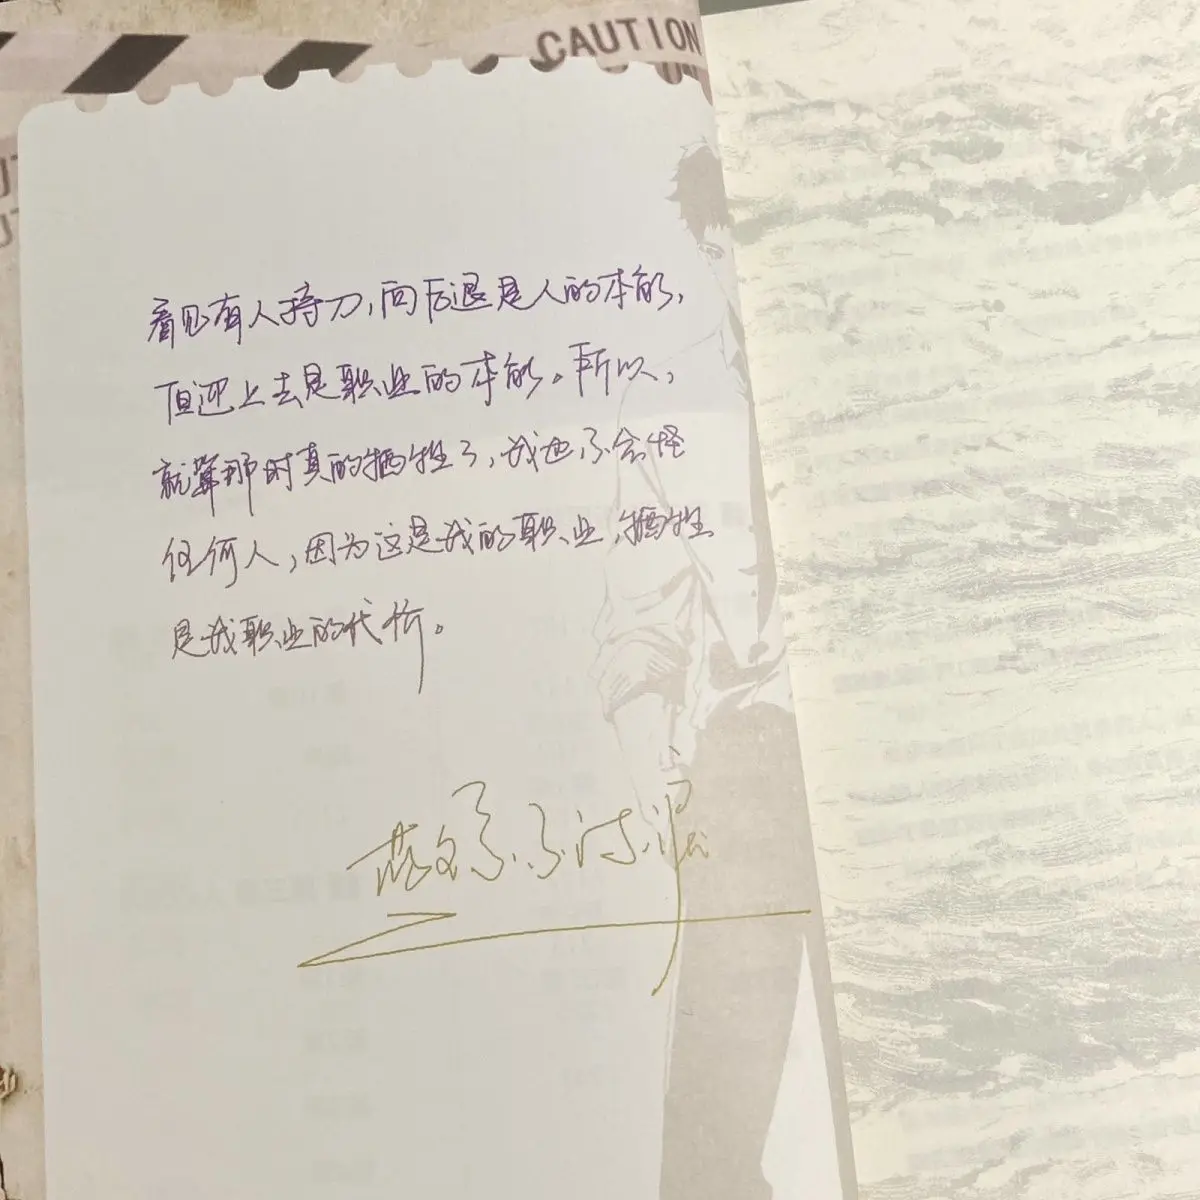 CAUTION
看见有人持刀,向后退是人的本能,
但迎上去是职业的本能。所以,
就算那时真的牺牲了,我也不会怪
任何人,因为这是我的职业,牺牲
是我职业的代价。